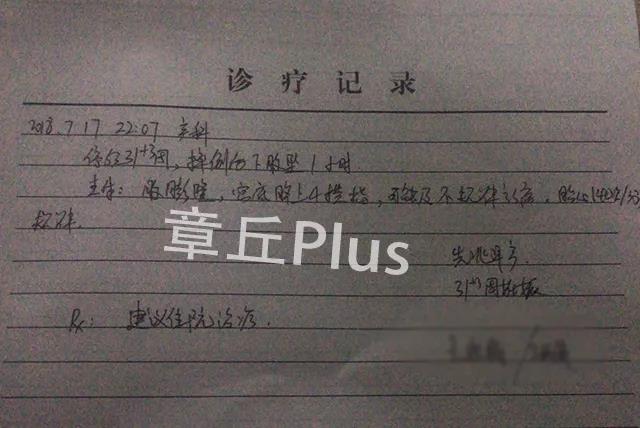 诊疗记录
2018.7.17 22:07 产科
停经31+3周，摔倒后下腹坠1小时
查体：腹膨隆，宫底脐上4横指，可触及不规律宫缩，胎心142次/分
规律.
章丘Plus
先兆早产
31+3周妊娠
Rx: 建议住院治疗.